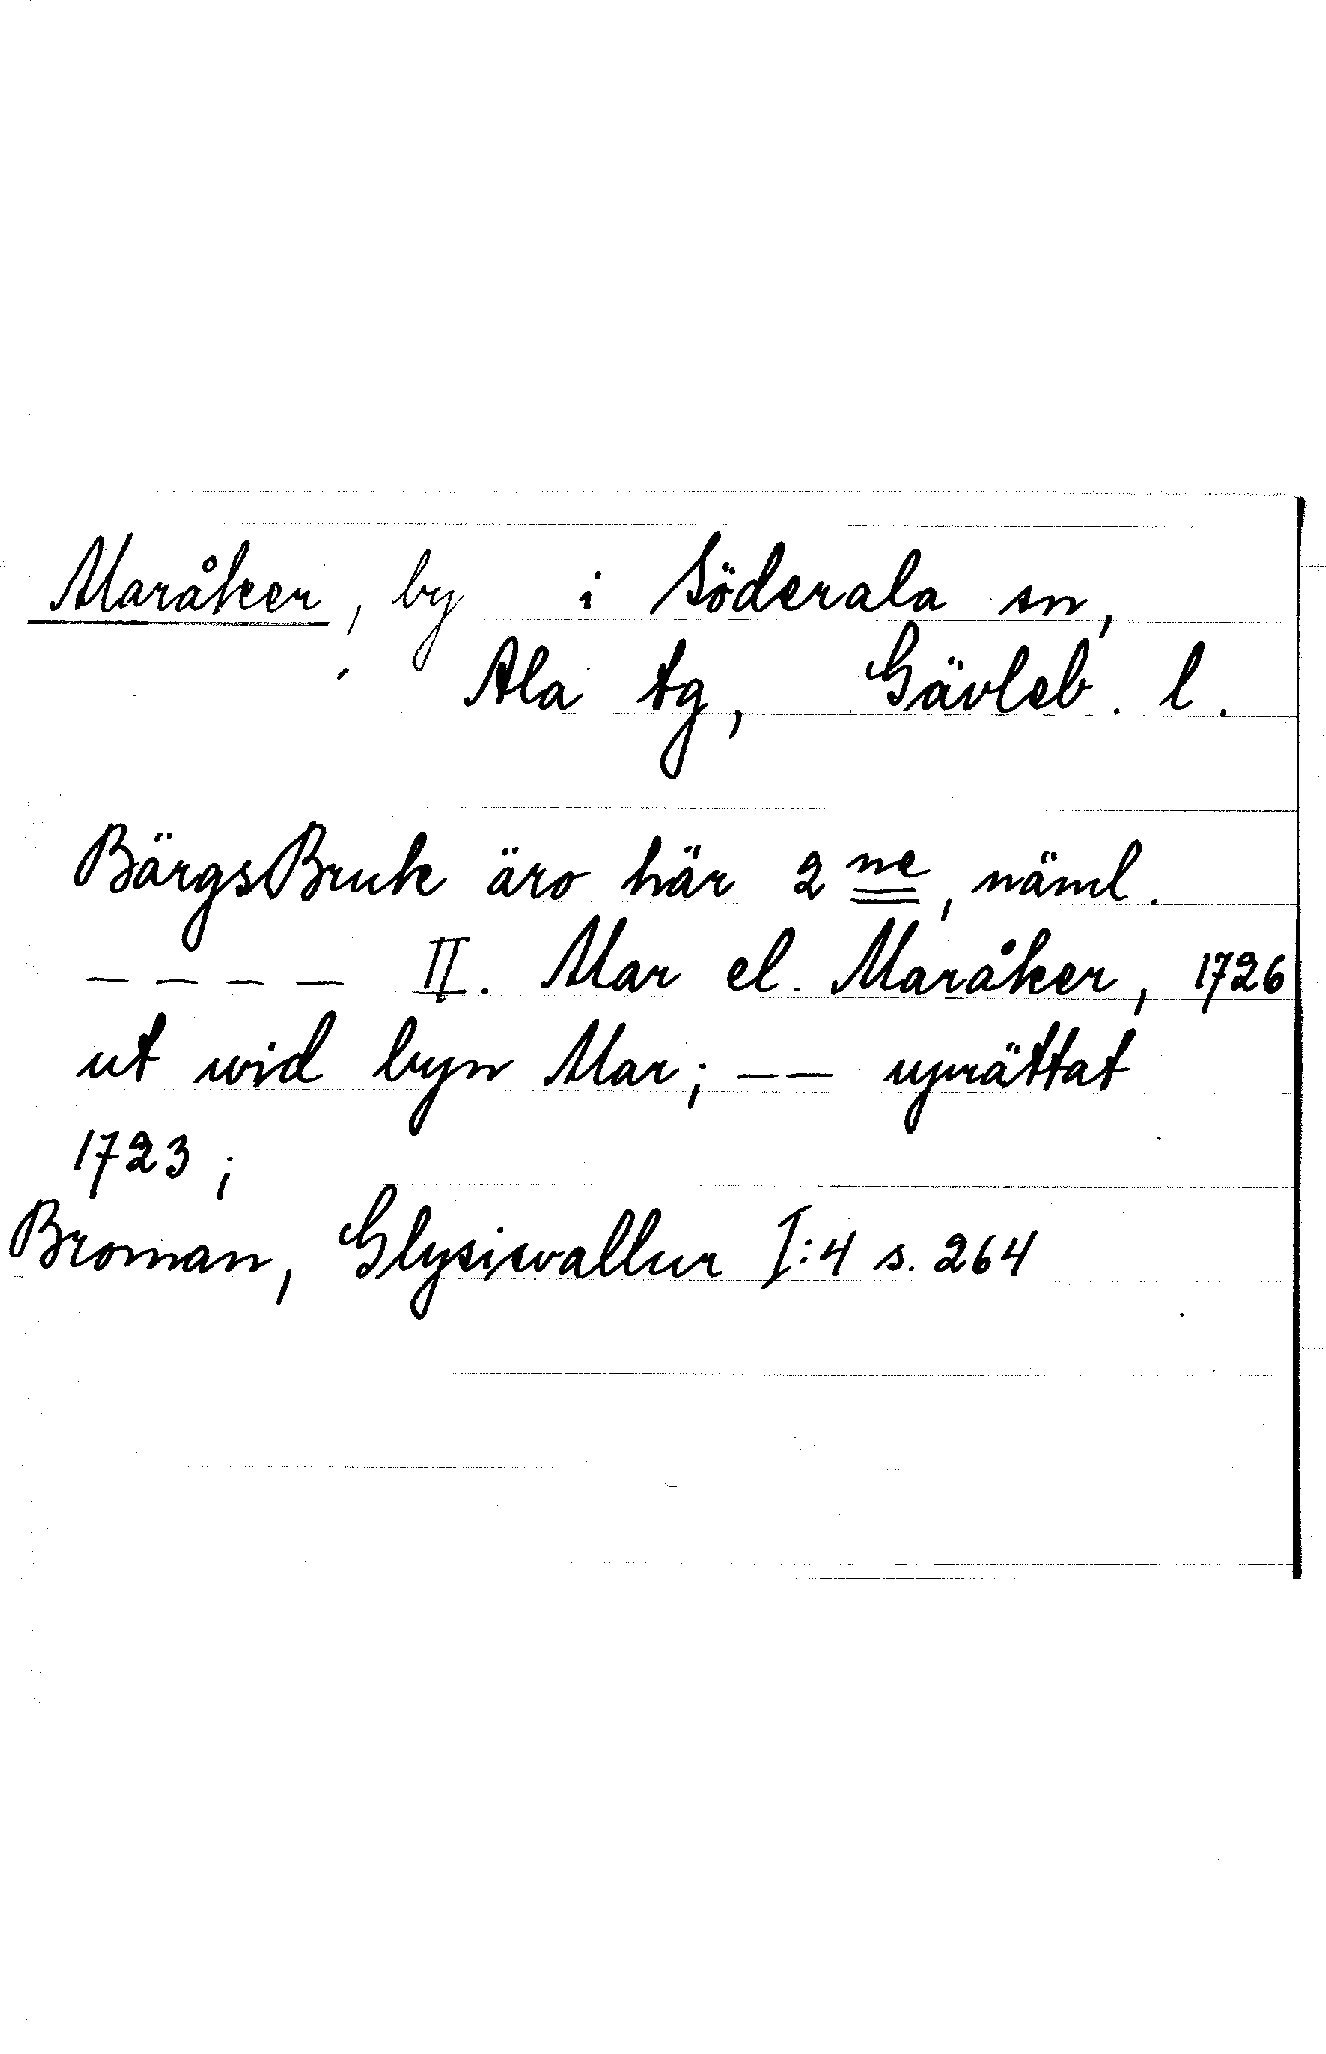 Maråker, by i Söderala sn,
Ala tg, Gävleb. l.
BärgsBruk äro här 2ne, näml.
---- II. Mar el. Maråker, 1726
ut wid byn Mar; -- uprättat
1723;
Broman, Glysisvallur I:4 s. 264